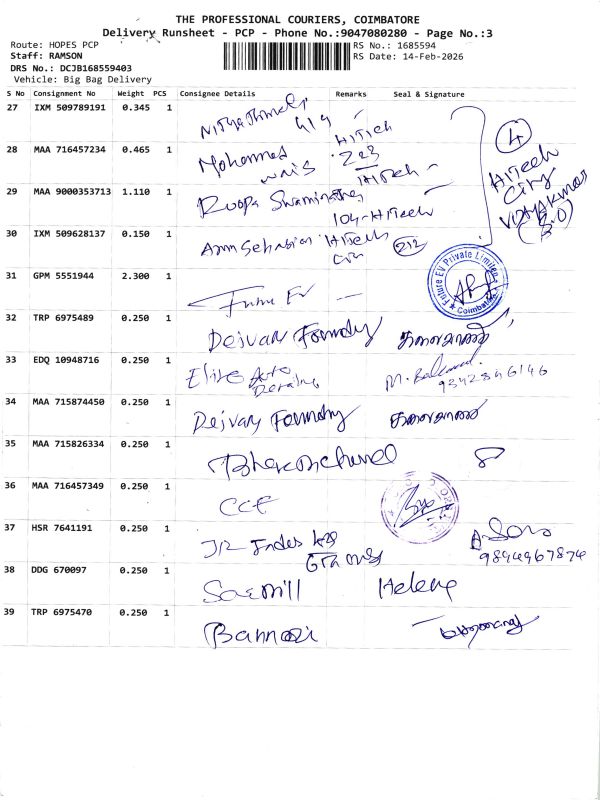 THE PROFESSIONAL COURIERS, COIMBATORE
Delivery Runsheet - PCP - Phone No.:9047080280 - Page No.:3
Route: HOPES PCP
RS No.: 1685594
Staff: RAMSON
RS Date: 14-Feb-2026
DRS No.: DCJB168559403
Vehicle: Big Bag Delivery
S No Consignment No Weight PCS Consignee Details Remarks Seal & Signature
27 IXM 509789191 0.345 1
HiTech
28 MAA 716457234 0.465 1 Mohammed
HiTech
29 MAA 9000353713 1.110 1 Roopa Swaminathan
104-HiTech
30 IXM 509628137 0.150 1 HiTech
212
4
HiTech
City
31 GPM 5551944 2.300 1 Future EV
Future EV Private Limited
Coimbatore
32 TRP 6975489 0.250 1 Deivam Foundry
33 EDQ 10948716 0.250 1 Elite Auto
9342846146
34 MAA 715874450 0.250 1 Deivam Foundry
35 MAA 715826334 0.250 1
36 MAA 716457349 0.250 1 CCE
37 HSR 7641191 0.250 1
9894967874
38 DDG 670097 0.250 1 Helene
39 TRP 6975470 0.250 1 Bannari